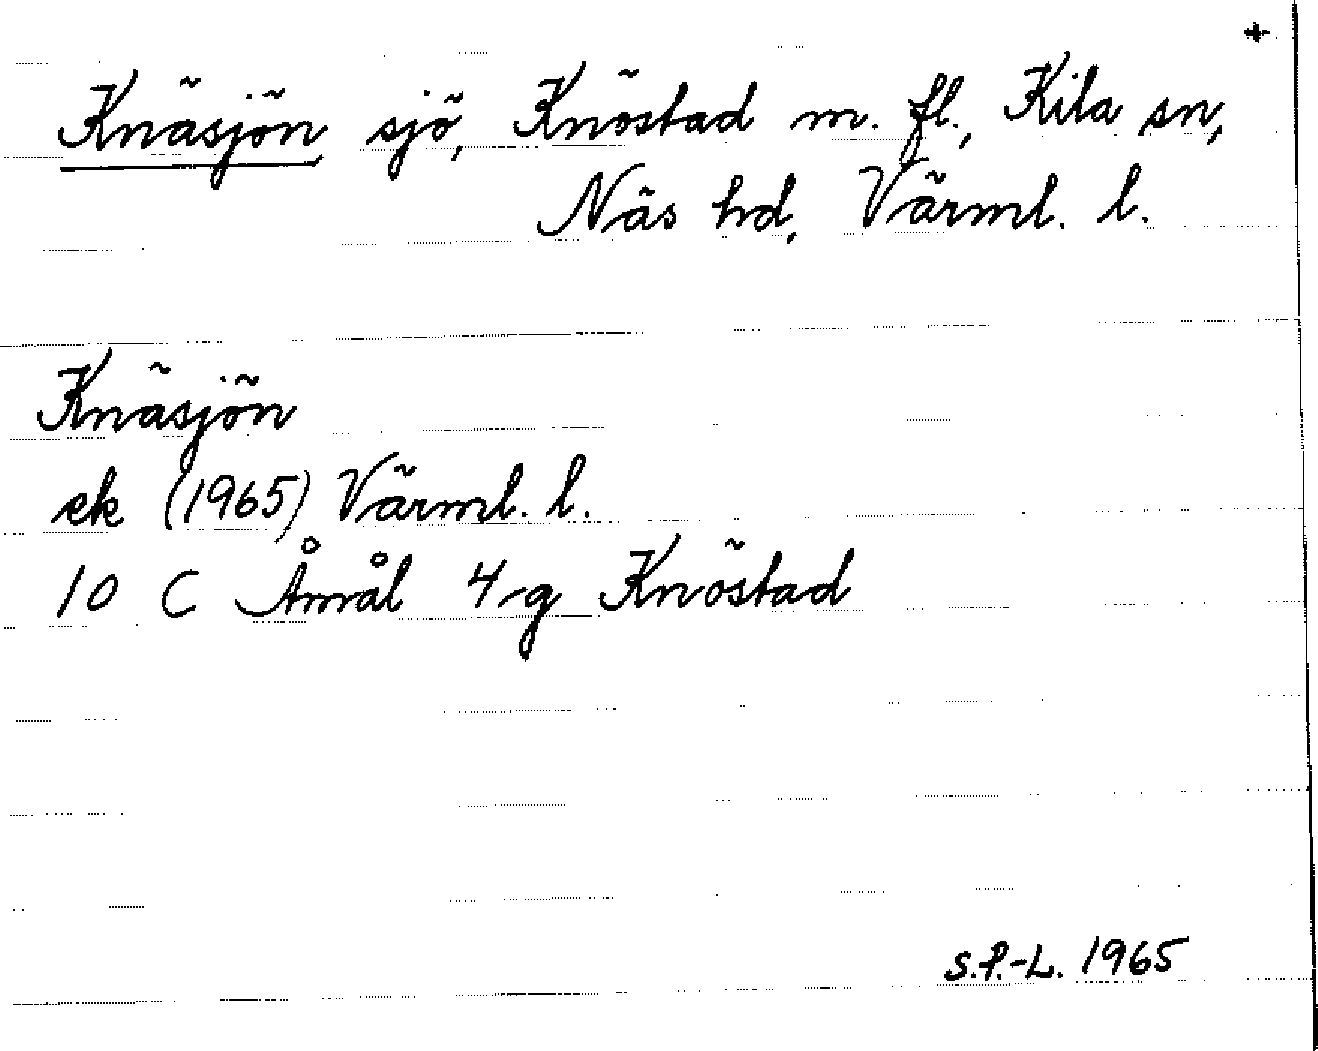 +
Knäsjön sjö, Knöstad m. fl., Kila sn,
Näs hd, Värml. l.
Knäsjön
ek (1965) Värml. l.
10 C Åmål 4-g Knöstad
S.P.-L. 1965